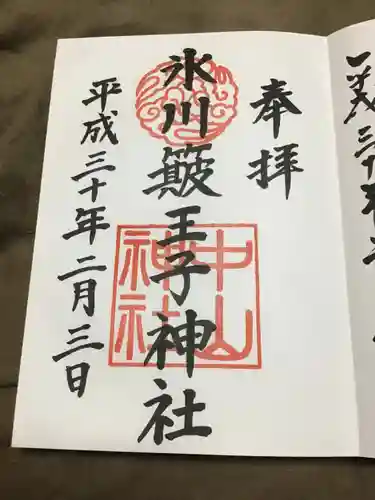 奉拝
氷川簸王子神社
平成三十年二月三日
中山神社